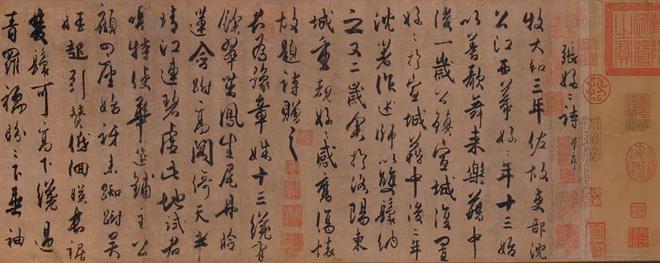 張好〻詩 并序
牧大和三年佐故吏部沈
公江西幕好〻年十三始
以善歌舞來樂籍中
後一歲公鎮宣城復置
好〻於宣城籍中後二年
沈著作述師以雙鬟納
之又二歲余於洛陽東
城重覩好〻感舊傷懷
故題詩贈之
君為豫章姝十三纔有
餘翠茁鳳生尾丹臉
蓮含跗高閣倚天半
晴江連碧虛此地試君
唱特使華筵鋪主公
顧四座始訝來踟躕吳
娃起引贊低徊映長裾
雙鬟可高下纔過
青羅襦盼〻下垂袖